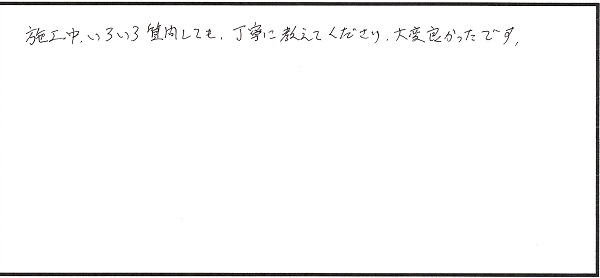 施工中、いろいろ質問しても、丁寧に教えてくださり、大変良かったです。